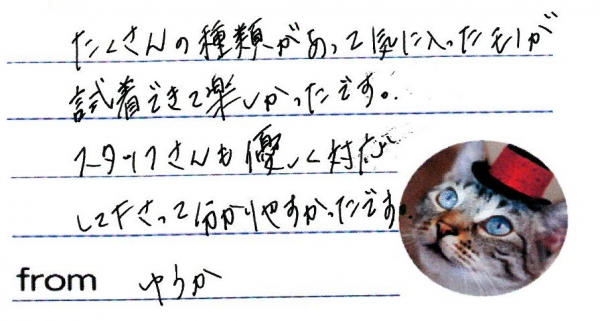 たくさんの種類があって気に入ったモノが
試着できて楽しかったです。
スタッフさんも優しく対応
して下さって分かりやすかったです。
from ゆうか